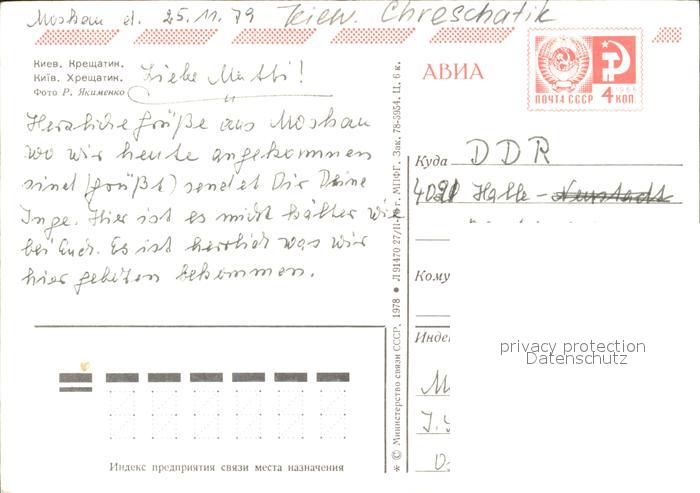 Moskau d. 25.11.79 Kiew. Chreschatik
Киев. Крещатик.
Київ. Хрещатик.
Фото Р. Якименко
Liebe Mutti!
Herzliche Grüße aus Moskau
wo wir heute angekommen
sind (grüßt) sendet Dir Deine
Inge. Hier ist es nicht kälter wie
bei Euch. Es ist herrlich was wir
hier geboten bekommen.
АВИА
1966
ПОЧТА СССР 4 КОП.
Куда DDR
4020 Halle - Neustadt
Кому
Индек
privacy protection
Datenschutz
M
J.
* © Министерство связи СССР, 1978 • Л 91470 27/II- г. МПФГ. Зак. 78-3954. Ц. 6 к.
Индекс предприятия связи места назначения